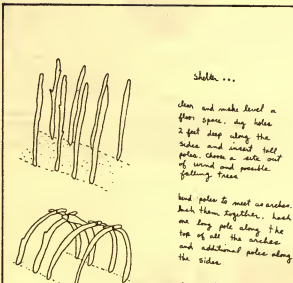 Shelter ...
clear and make level a
floor space. dig holes
2 feet deep along the
sides and insert tall
poles. choose a site out
of wind and possible
falling trees
bend poles to meet as arches.
lash them together. lash
one long pole along the
top of all the arches
and additional poles along
the sides